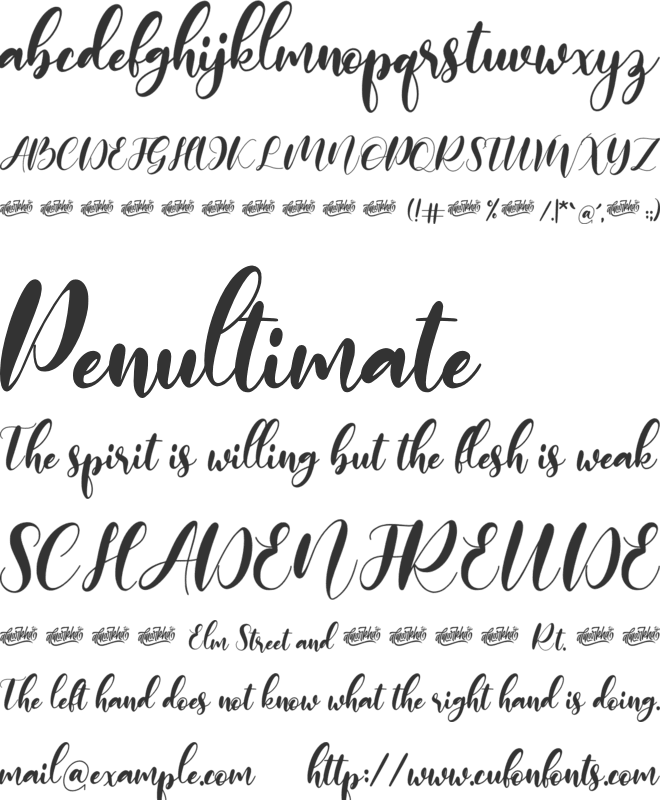 abcdefghijklmnopqrstuvwxyz
ABCDEFGHIJKLMNOPQRSTUVWXYZ
(!# % /.|*`@´, :;)
Penultimate
The spirit is willing but the flesh is weak
SCHADENFREUDE
Elm Street and Rt.
The left hand does not know what the right hand is doing.
mail@example.com http://www.cufonfonts.com